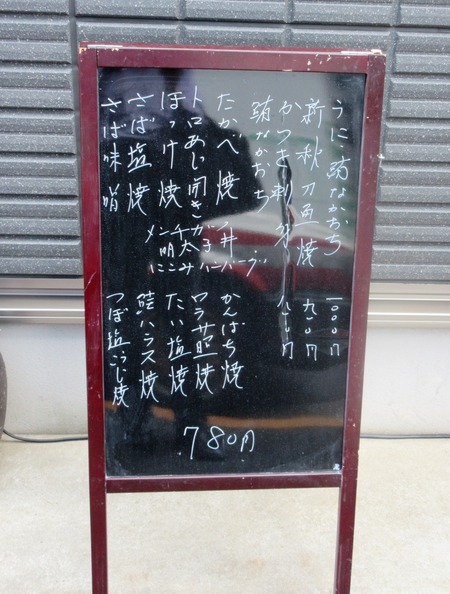 うに、鮪なかおち 一〇〇〇円
新秋刀魚焼 九〇〇円
かつを刺身 八〇〇円
鮪なかおち
たかべ焼
トロあじ開き
ほっけ焼
さば塩焼
さば味噌
丼
ガ
メンチ
にこみハンバーグ
かんばち焼
カラサ照焼
たい塩焼
鮭ハラス焼
つぼ塩こうじ焼
780円